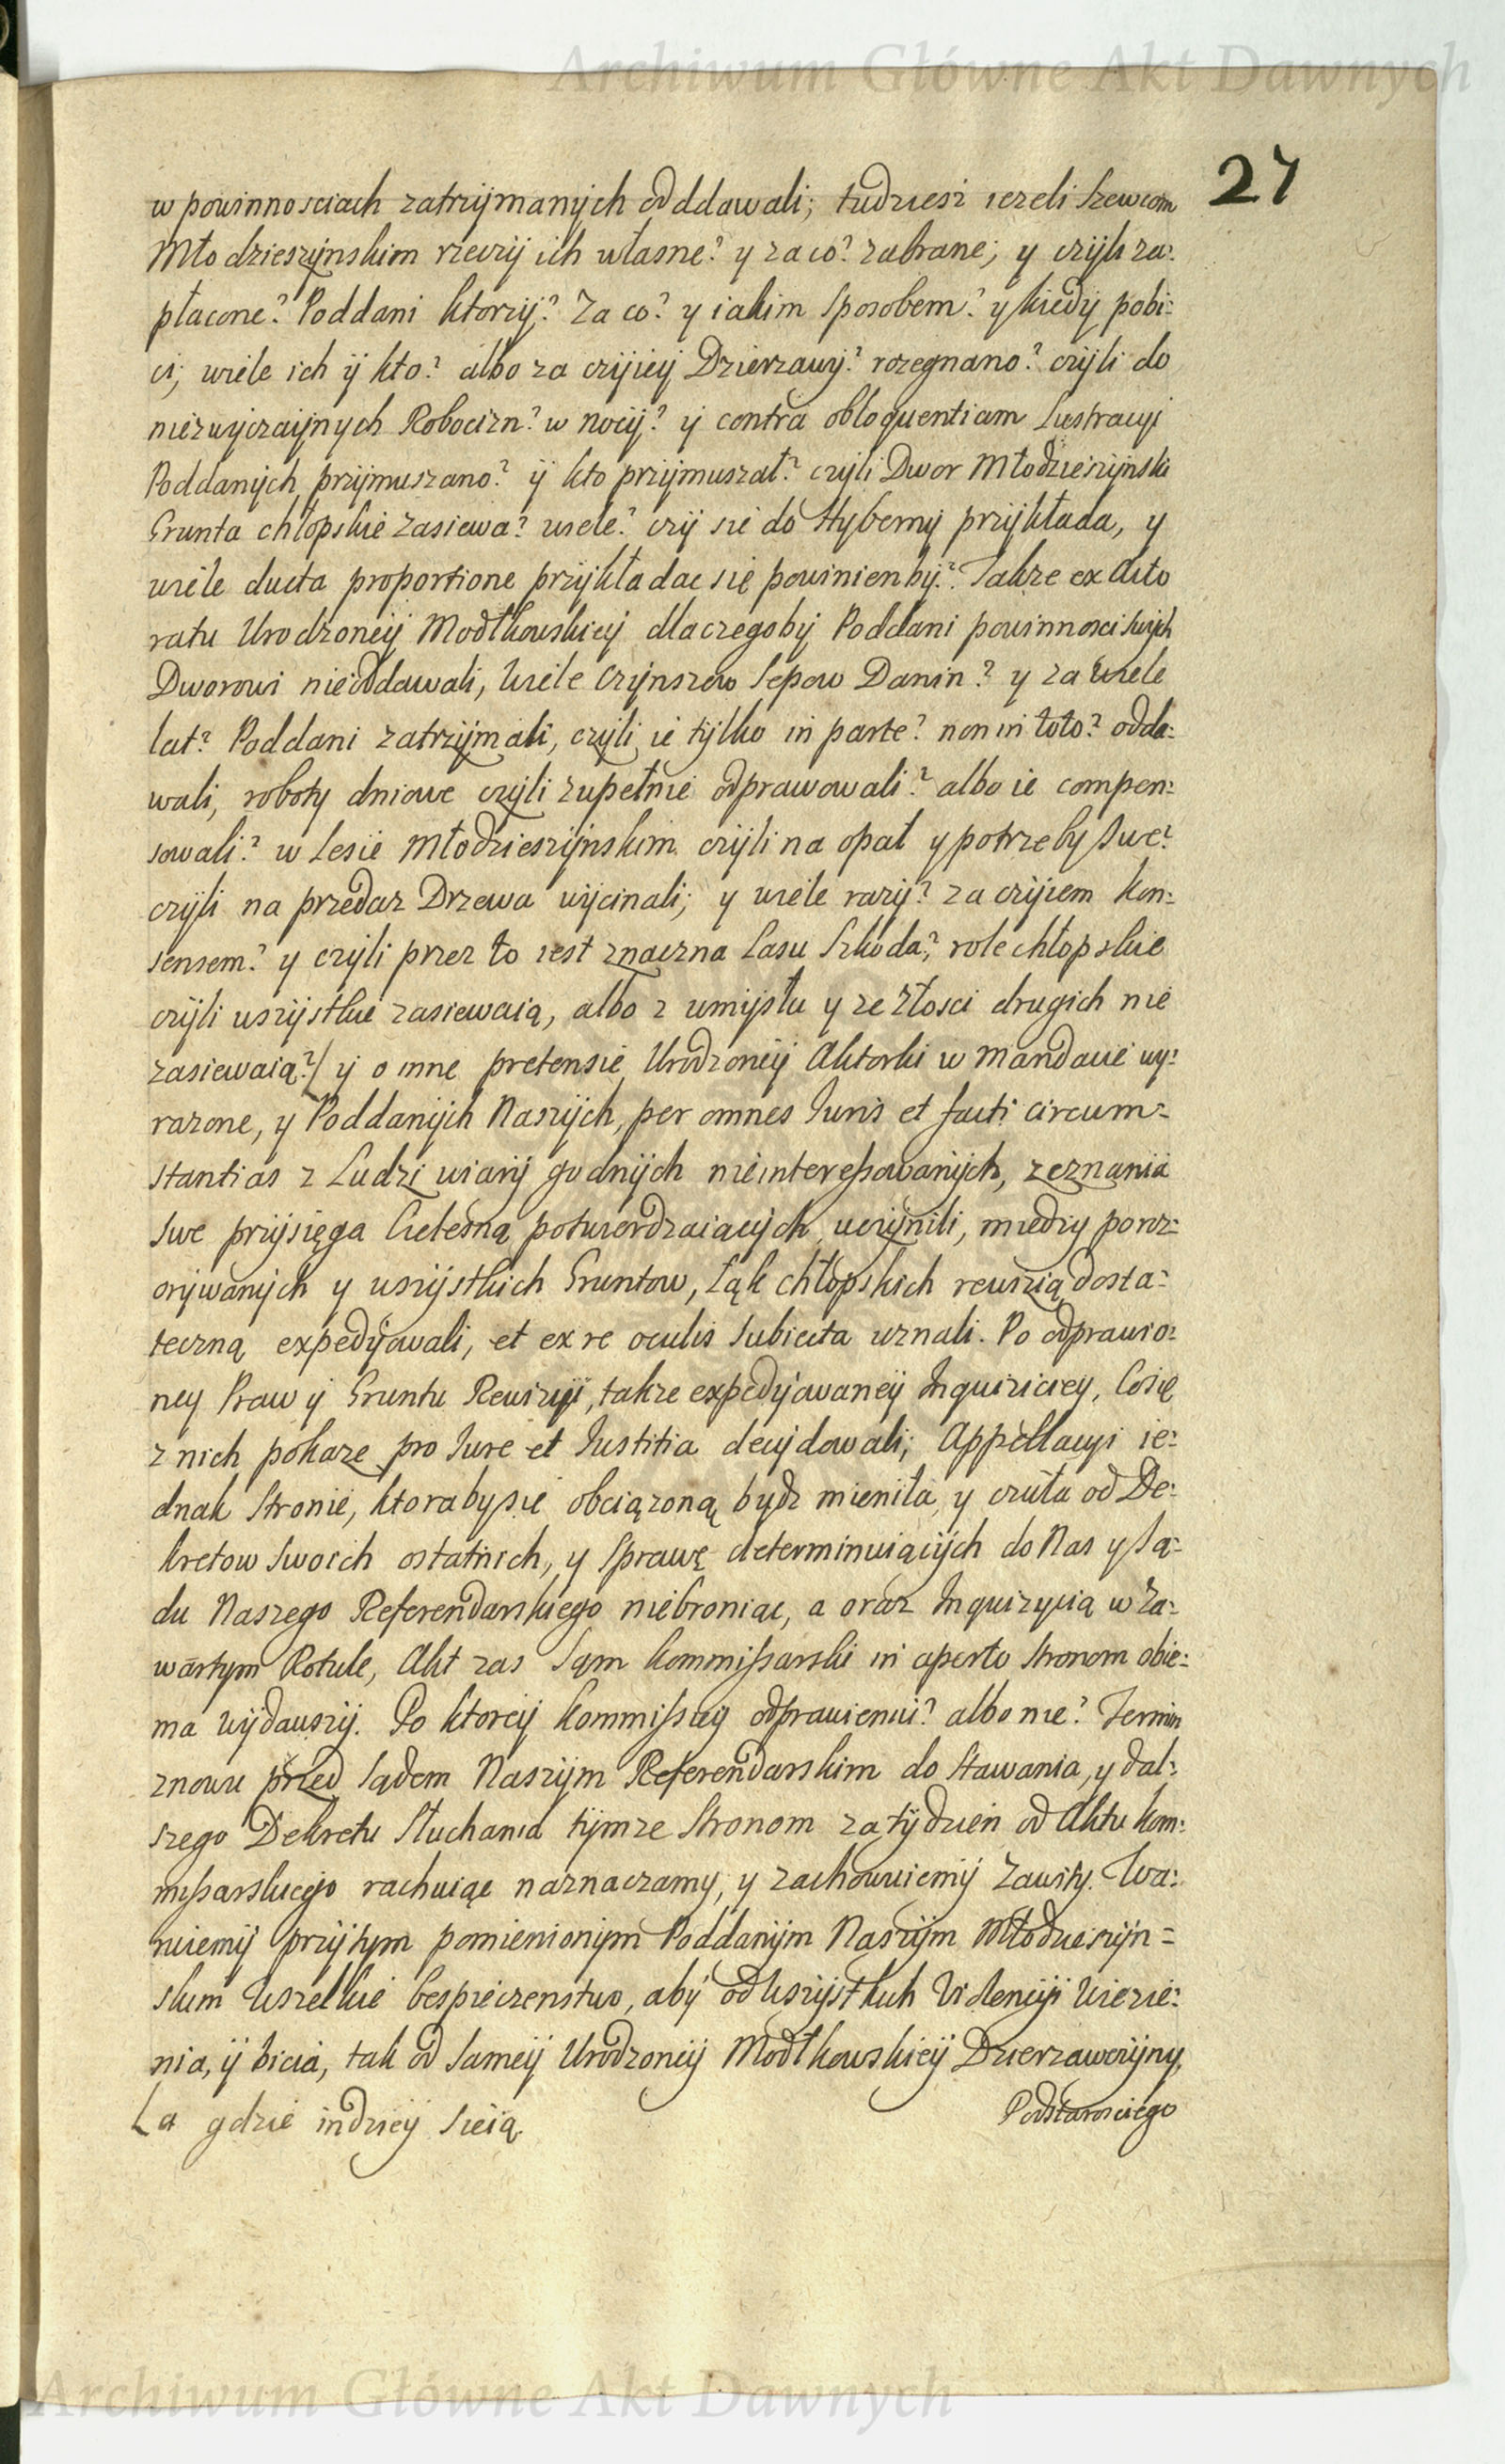 Archiwum Główne Akt Dawnych
27
w powinnosciach zatrzÿmanÿch oddawali; tudziesz iezeli Szewcom
Młodzieszÿnskim rzeczÿ ich własne? y za co? zabrane; y czÿli za:
płacone? Poddani ktorzÿ? Za co? y iakim Sposobem? y kiedÿ pobi:
ci; wiele ich ÿ kto? albo za czÿieÿ Dzierzawÿ? rozegnano? czÿli do
niezwÿczaÿnych Robocizn? w nocÿ? ÿ contra obloquentiam Lustracÿi
Poddanÿch przÿmuszano? ÿ kto przÿmuszał? czÿli Dwor Młodzieszÿnski
Grunta chłopskie zasiewa? wiele? czÿ sie do Hyberny przÿkłada, y
wiele ducta proportione przÿkładac się powinien bÿ? Takze ex Acto
ratu Urodzoneÿ Modłkowskieÿ dlaczegobÿ Poddani powinnosci swÿch
Dworowi nieoddawali, Wiele Czÿnszow Sepow Danin? y za wiele
lat? Poddani zatrzÿmali, czÿli ie tÿlko in parte? non in toto? odda:
wali, roboty dniowe czÿli zupełnie odprawowali? albo ie compen:
sowali? w Lesie Młodzieszÿnskim czÿli na opał y potrzeby Swe?
czÿli na przedaz Drzewa wÿcinali; y wiele razÿ? za czÿiem kon:
sensem? y czÿli przez to iest znaczna Lasu Szkoda? role chłopskie
czÿli wszÿstkie zasiewaią, albo z umÿsłu y ze złosci drugich nie
zasiewaią?/ ÿ o inne pretensie Urodzoneÿ Aktorki w Mandacie wy:
razone, y Poddanÿch Naszÿch, per omnes Juris et facti circum=
stantias z Ludzi wiarÿ godnÿch nieinteressowanÿch, zeznania
swe przÿsięga Cielesną potwierdzaiącÿch uczÿnili, miedzy poroz:
orÿwanÿch y wszÿstkich Gruntow, Łąk chłopskich rewizią dosta:
teczną expedÿowali, et ex re oculis Subiecta uznali. Po odprawio:
ney Praw ÿ Gruntu Rewizÿi, takze expedÿowaneÿ Inquiziciey, Co się
z nich pokaze pro Jure et Justitia decÿdowali; Appellacyi ie:
dnak Stronie, ktorabysie obciązoną bydz mieniła, y czuła od De:
kretow Swoich ostatnich, y Sprawę determinuiącÿch do Nas y Są:
du Naszego Referendarskiego niebroniąc, a oraz Inquizycią w Za:
wartym Rotule, Akt zas Sąm Kommissarski in aperto Stronom obie:
ma wÿdawszÿ. Po ktoreÿ Kommissyÿ odprawieniu? albo nie? Termin
znowu przed Sądem Naszÿm Referendarskim do Stawania, y dal:
szego Dekretu Słuchania tÿmze Stronom za tÿdzien od Aktu Kom:
missarskiego rachuiąc naznaczamy, y zachowuiemÿ Zawity. Wa:
ruiemÿ przÿtym pomienionÿm Poddanÿm Naszÿm Młodzieszÿn=
skim Wszelkie bespieczenstwo, abÿ od Wszÿstkich Violencÿi Wiezie:
nia, ÿ bicia, tak od Sameÿ Urodzoneÿ Modłkowskieÿ Dzierzawczÿny,
Podstarosciego
La gdzie indzieÿ Sieią
Archiwum Główne Akt Dawnych